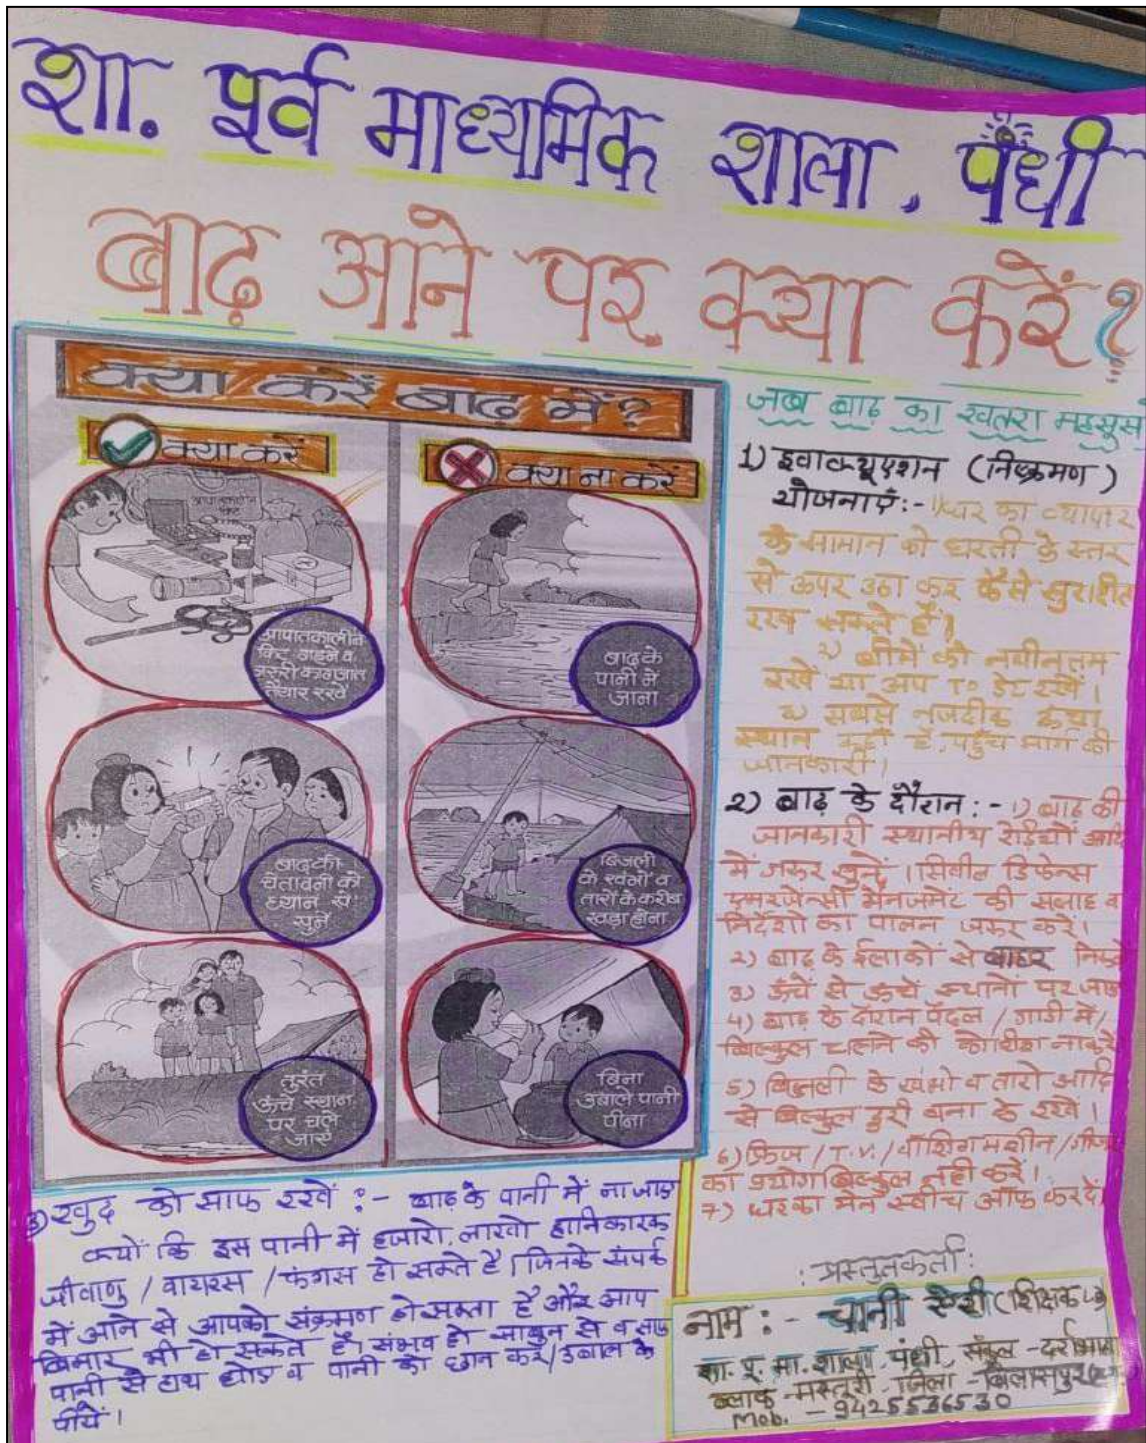 शा. पूर्व माध्यमिक शाला, पंधी
बाढ़ आने पर क्या करें?
क्या करें बाढ़ में?
क्या करें
आपातकालीन
किट गहने व
जरुरी कागजात
तैयार रखें
बाढ़ की
चेतावनी को
ध्यान से
सुनें
तुरंत
ऊंचे स्थान
पर चले
जाएं
क्या ना करें
बाढ़ के
पानी में
जाना
बिजली
के खंभों व
तारों के करीब
खड़ा होना
बिना
उबाले पानी
पीना
जब बाढ़ का खतरा महसूस
1) इवाक्यूएशन (निष्क्रमण)
योजनाएं:- 1) घर का व्यापार
के सामान को धरती के स्तर
से ऊपर उठा कर कैसे सुरक्षित
रख सकते हैं।
2) बीमें को नवीनतम
रखें या अप To डेट रखें।
सबसे नजदीक ऊंचा
स्थान कहाँ है, पहुँच मार्ग की
जानकारी।
2) बाढ़ के दौरान:- 1) बाढ़ की
जानकारी स्थानीय रेडियों आदि
में जरूर सुनें। सिवील डिफेन्स
एमरजेन्सी मैनजमेंट की सलाह व
निर्देशो का पालन जरूर करें।
2) बाढ़ के ईलाकों से बाहर
3) ऊँचे से ऊचें स्थानो पर
4) बाढ़ के दौरान पैदल / गाडी में/
बिल्कुल चलने की कोशिश ना करें
5) बिजली के खंभो व तारो आदि
से बिल्कुल दुरी बना के रखें।
6) फ्रिज / T.V. / वॉशिंग मशीन /
का प्रयोग बिल्कुल नही करें।
7) घर का मेन स्वीच ऑफ कर दें
3) खुद को साफ रखें:- बाढ़ के पानी में ना जाए
क्यों कि इस पानी में हजारो, लाखो हानिकारक
जीवाणु / वायरस / फंगस हो सकते है। जिनके संपर्क
में आने से आपको संक्रमण हो सकता है और आप
बिमार भी हो सकते है। संभव हो साबुन से व साफ
पानी से हाथ धोए व पानी को छान कर/उबाल के
पीयें।
:प्रस्तुतकर्ता:
नाम:- चानी ऐरी (शिक्षक
शा. पू. मा. शाला, पंधी, संकुल - दर्राभाठा
ब्लाक - मस्तूरी, जिला - बिलासपुर
Mob. - 9425536530